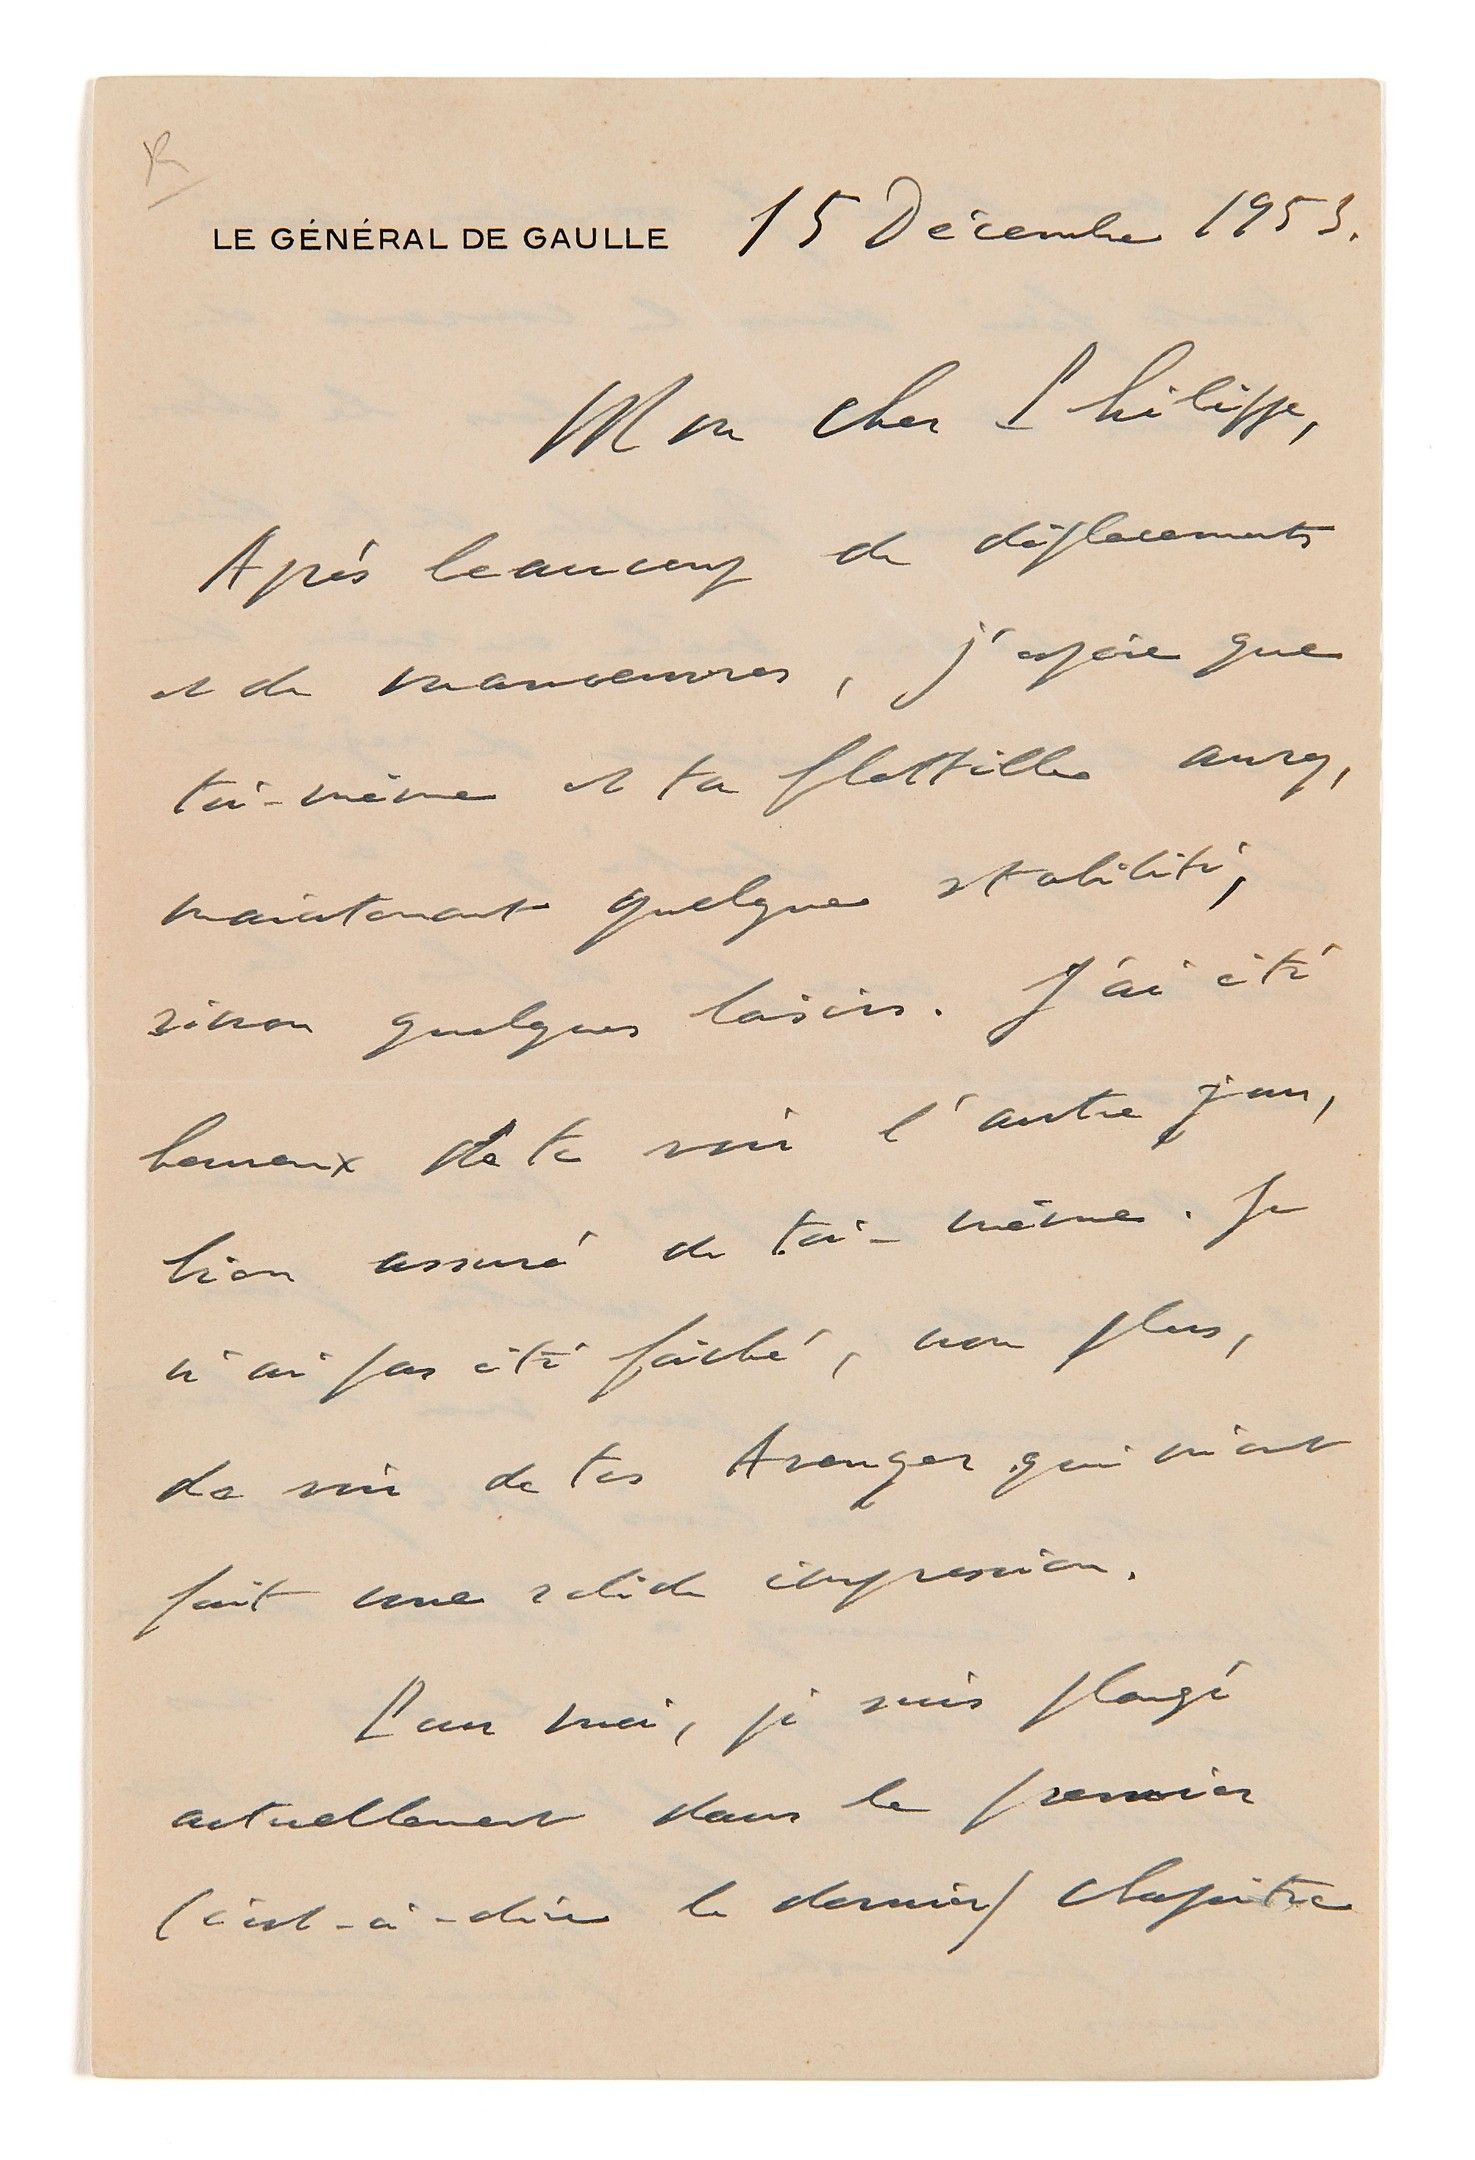 LE GÉNÉRAL DE GAULLE 15 Décembre 1953.
Mon cher Philippe,
Après beaucoup de déplacements
et de manoeuvres, j'espère que
toi-même et ta flottille aurez,
maintenant quelque stabilité,
sinon quelques loisirs. J'ai été
heureux de te voir l'autre jour,
bien assuré de toi-même. Je
n'ai pas été fâché, non plus,
de voir de tes Avenger qui m'ont
fait une solide impression.
Pour moi, je suis plongé
actuellement dans le premier
(c'est-à-dire le dernier) chapitre